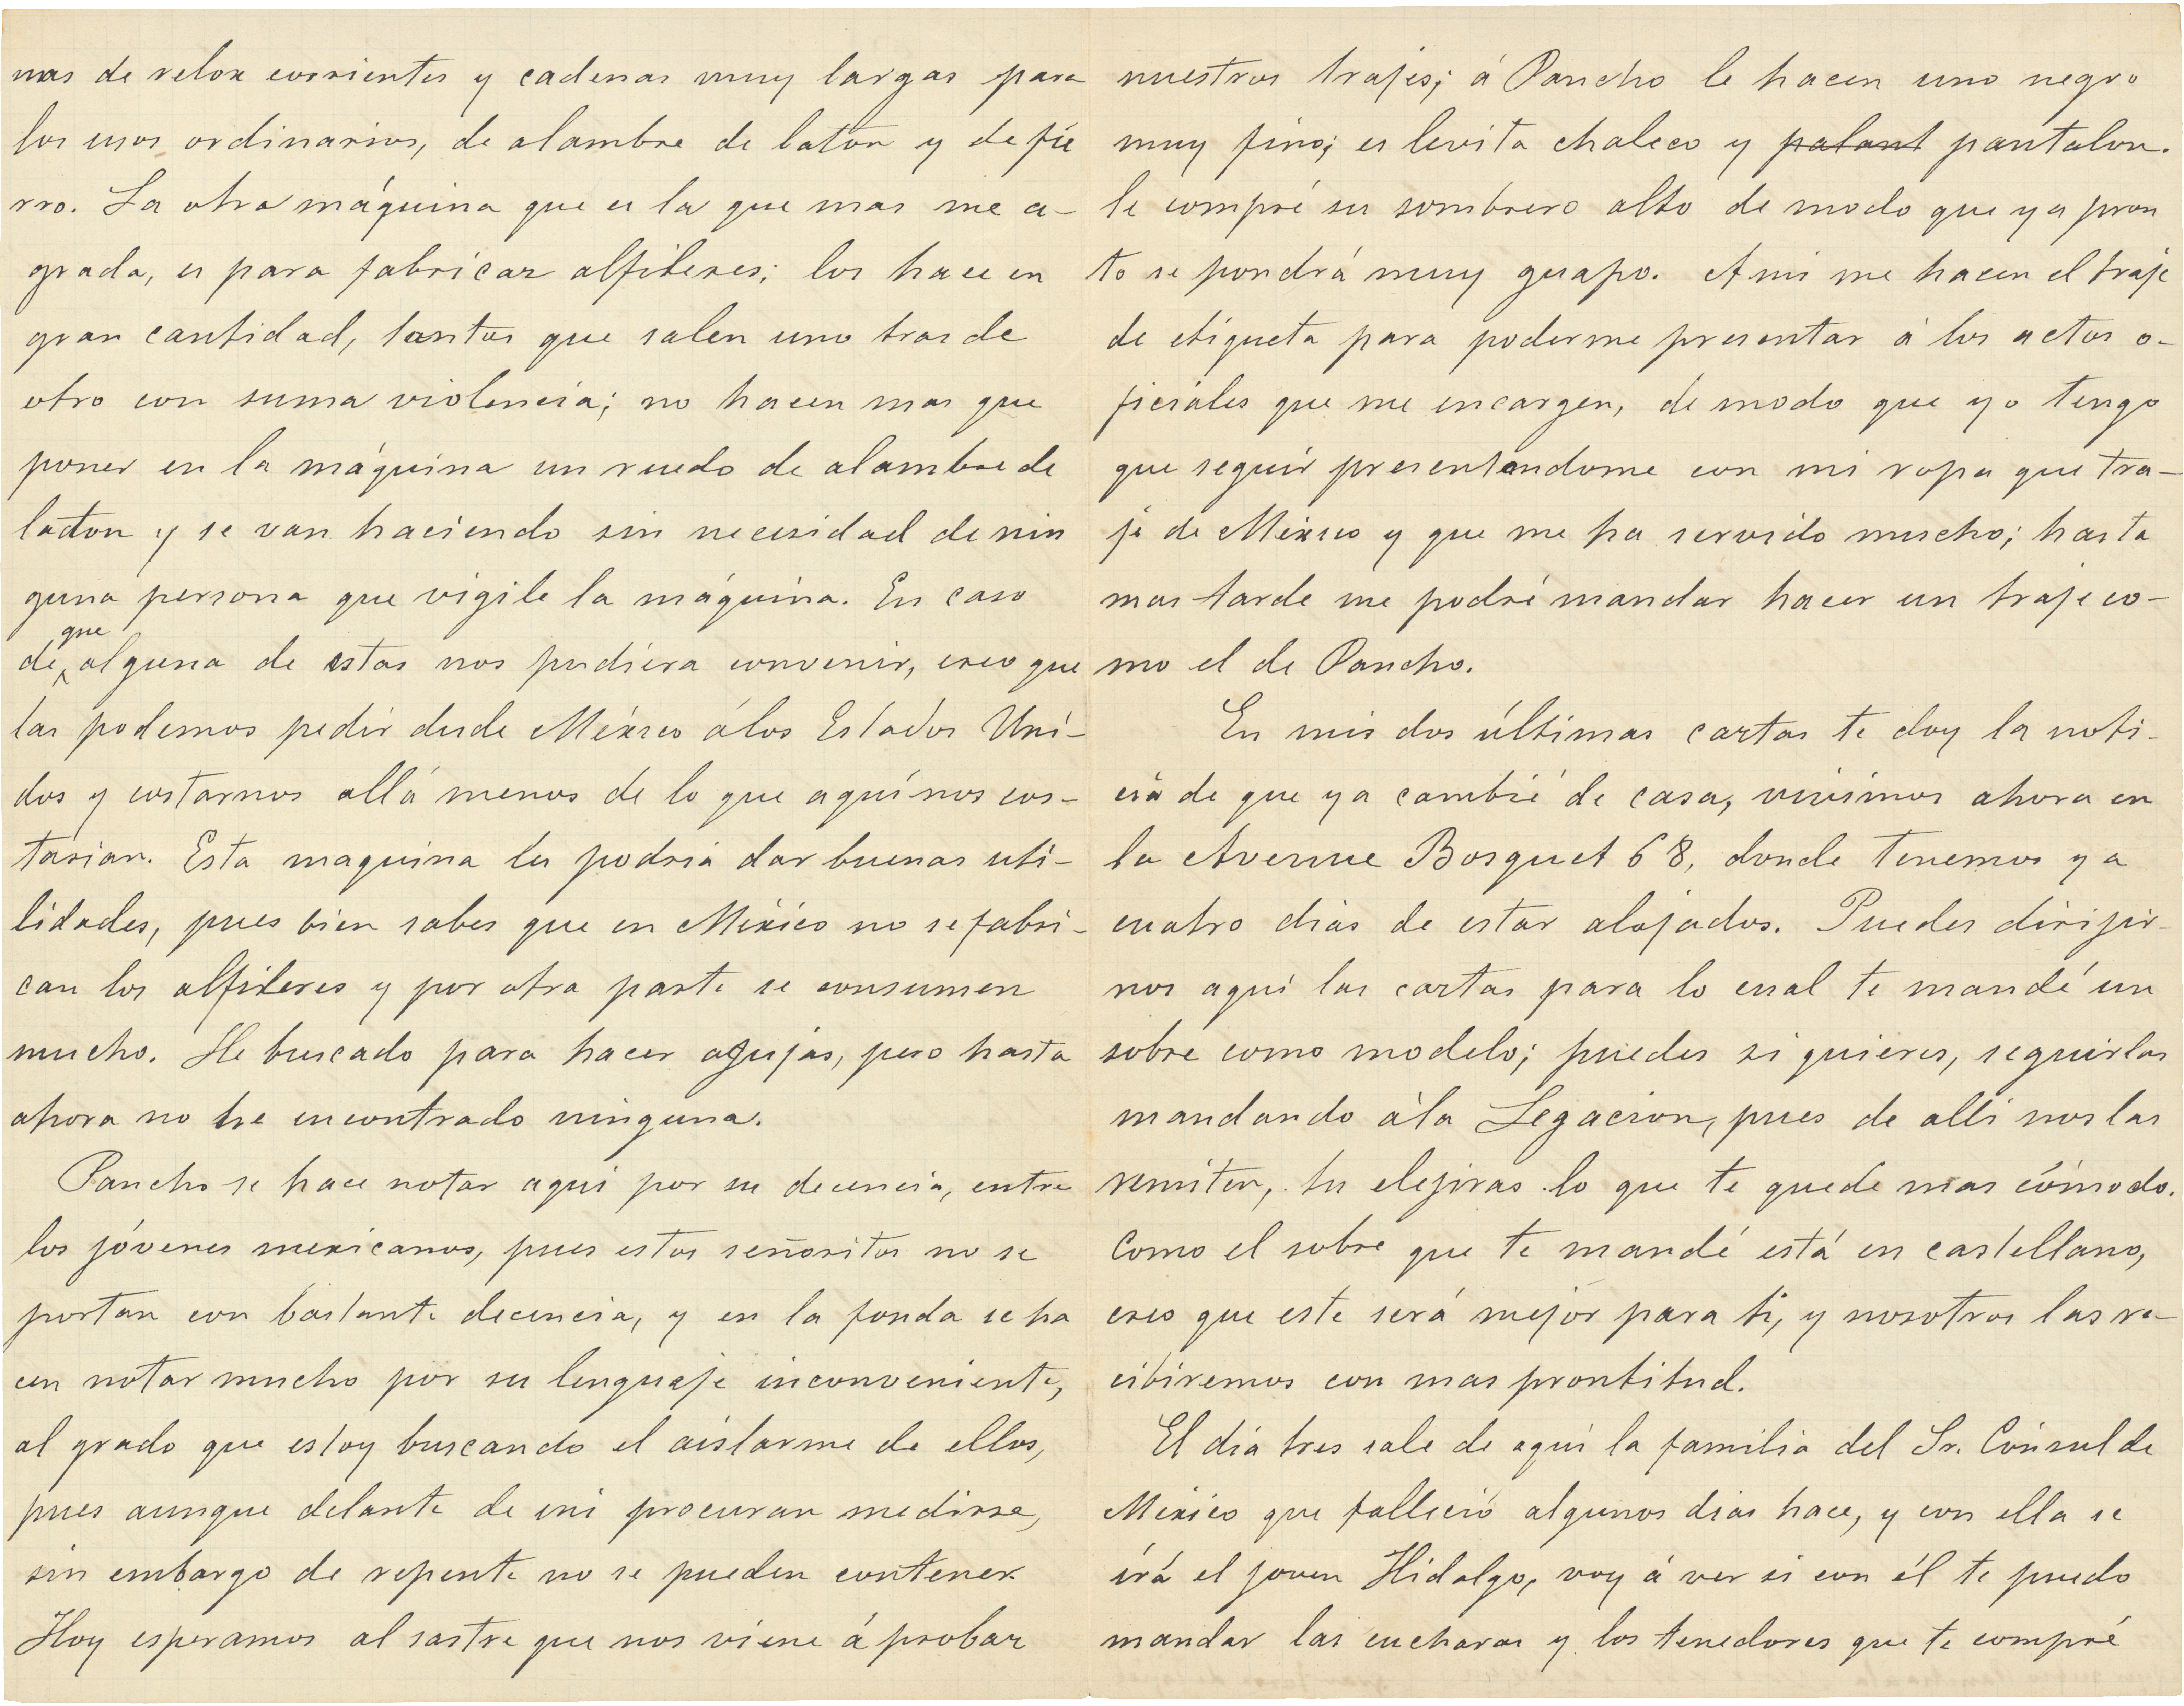 nas de relox corrientes y cadenas muy largas para
los usos ordinarios, de alambre de laton y de fie
rro. La otra máquina que es la que mas me a-
grada, es para fabricar alfileres; los hace en
gran cantidad, tantos que salen uno tras de
otro con suma violencia; no hacen mas que
poner en la máquina un ruedo de alambre de
laton y se van haciendo sin necesidad de nin
guna persona que vigile la máquina. En caso
de que alguna de estas nos pudiera convenir, creo que
las podemos pedir desde México á los Estados Uni-
dos y costarnos allá menos de lo que aquí nos cos-
tarian. Esta maquina les podria dar buenas uti-
lidades, pues bien sabes que en México no se fabri-
can los alfileres y por otra parte se consumen
mucho. He buscado para hacer agujas, pero hasta
ahora no he encontrado ninguna.
Pancho se hace notar aqui por su decencia, entre
los jóvenes mexicanos, pues estos señoritos no se
portan con bastante decencia, y en la fonda se ha
cen notar mucho por su lenguaje inconveniente,
al grado que estoy buscando el aislarme de ellos,
pues aunque delante de mi procuran medirse,
sin embargo de repente no se pueden contener.
Hoy esperamos al sastre que nos viene á probar
nuestros trajes; á Pancho le hacen uno negro
muy fino; es levita chaleco y palant pantalon.
le compré su sombrero alto de modo que ya pron
to se pondrá muy guapo. A mi me hacen el traje
de etiqueta para poderme presentar á los actos o-
ficiales que me encargen, de modo que yo tengo
que seguir presentandome con mi ropa que tra-
je de México y que me ha servido mucho; hasta
mas tarde me podré mandar hacer un traje co-
mo el de Pancho.
En mis dos últimas cartas te doy la noti-
cia de que ya cambié de casa, vivimos ahora en
la Avenue Bosquet 68, donde tenemos ya
cuatro dias de estar alojados. Puedes dirijir-
nos aqui las cartas para lo cual te mandé un
sobre como modelo; puedes si quieres, seguirlas
mandando á la Legacion, pues de alli nos las
remiten, tu elejiras lo que te quede mas cómodo.
Como el sobre que te mandé está en castellano,
creo que este será mejor para ti, y nosotros las re-
cibiremos con mas prontitud.
El dia tres sale de aqui la familia del Sr. Cónsul de
México que falleció algunos dias hace, y con ella se
irá el joven Hidalgo, voy á ver si con él te puedo
mandar las cucharas y los tenedores que te compré